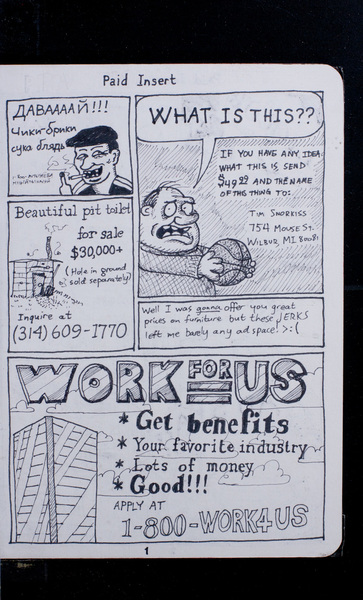 Paid Insert
ДАВАААЙ!!!
Чики-брики
сука блядь
WHAT IS THIS??
IF YOU HAVE ANY IDEA
WHAT THIS IS SEND
$49.99 AND THE NAME
OF THIS THING TO:
TIM SNORKISS
754 MOUSE ST.
WILBUR, MI 80081
Beautiful pit toilet
for sale
$30,000+
(Hole in ground
sold separately)
Inquire at
(314) 609-1770
Well I was gonna offer you great
prices on furniture but these JERKS
left me barely any ad space! >:(
WORK FOR US
* Get benefits
* Your favorite industry
* Lots of money
* Good!!!
APPLY AT
1-800-WORK4US
1